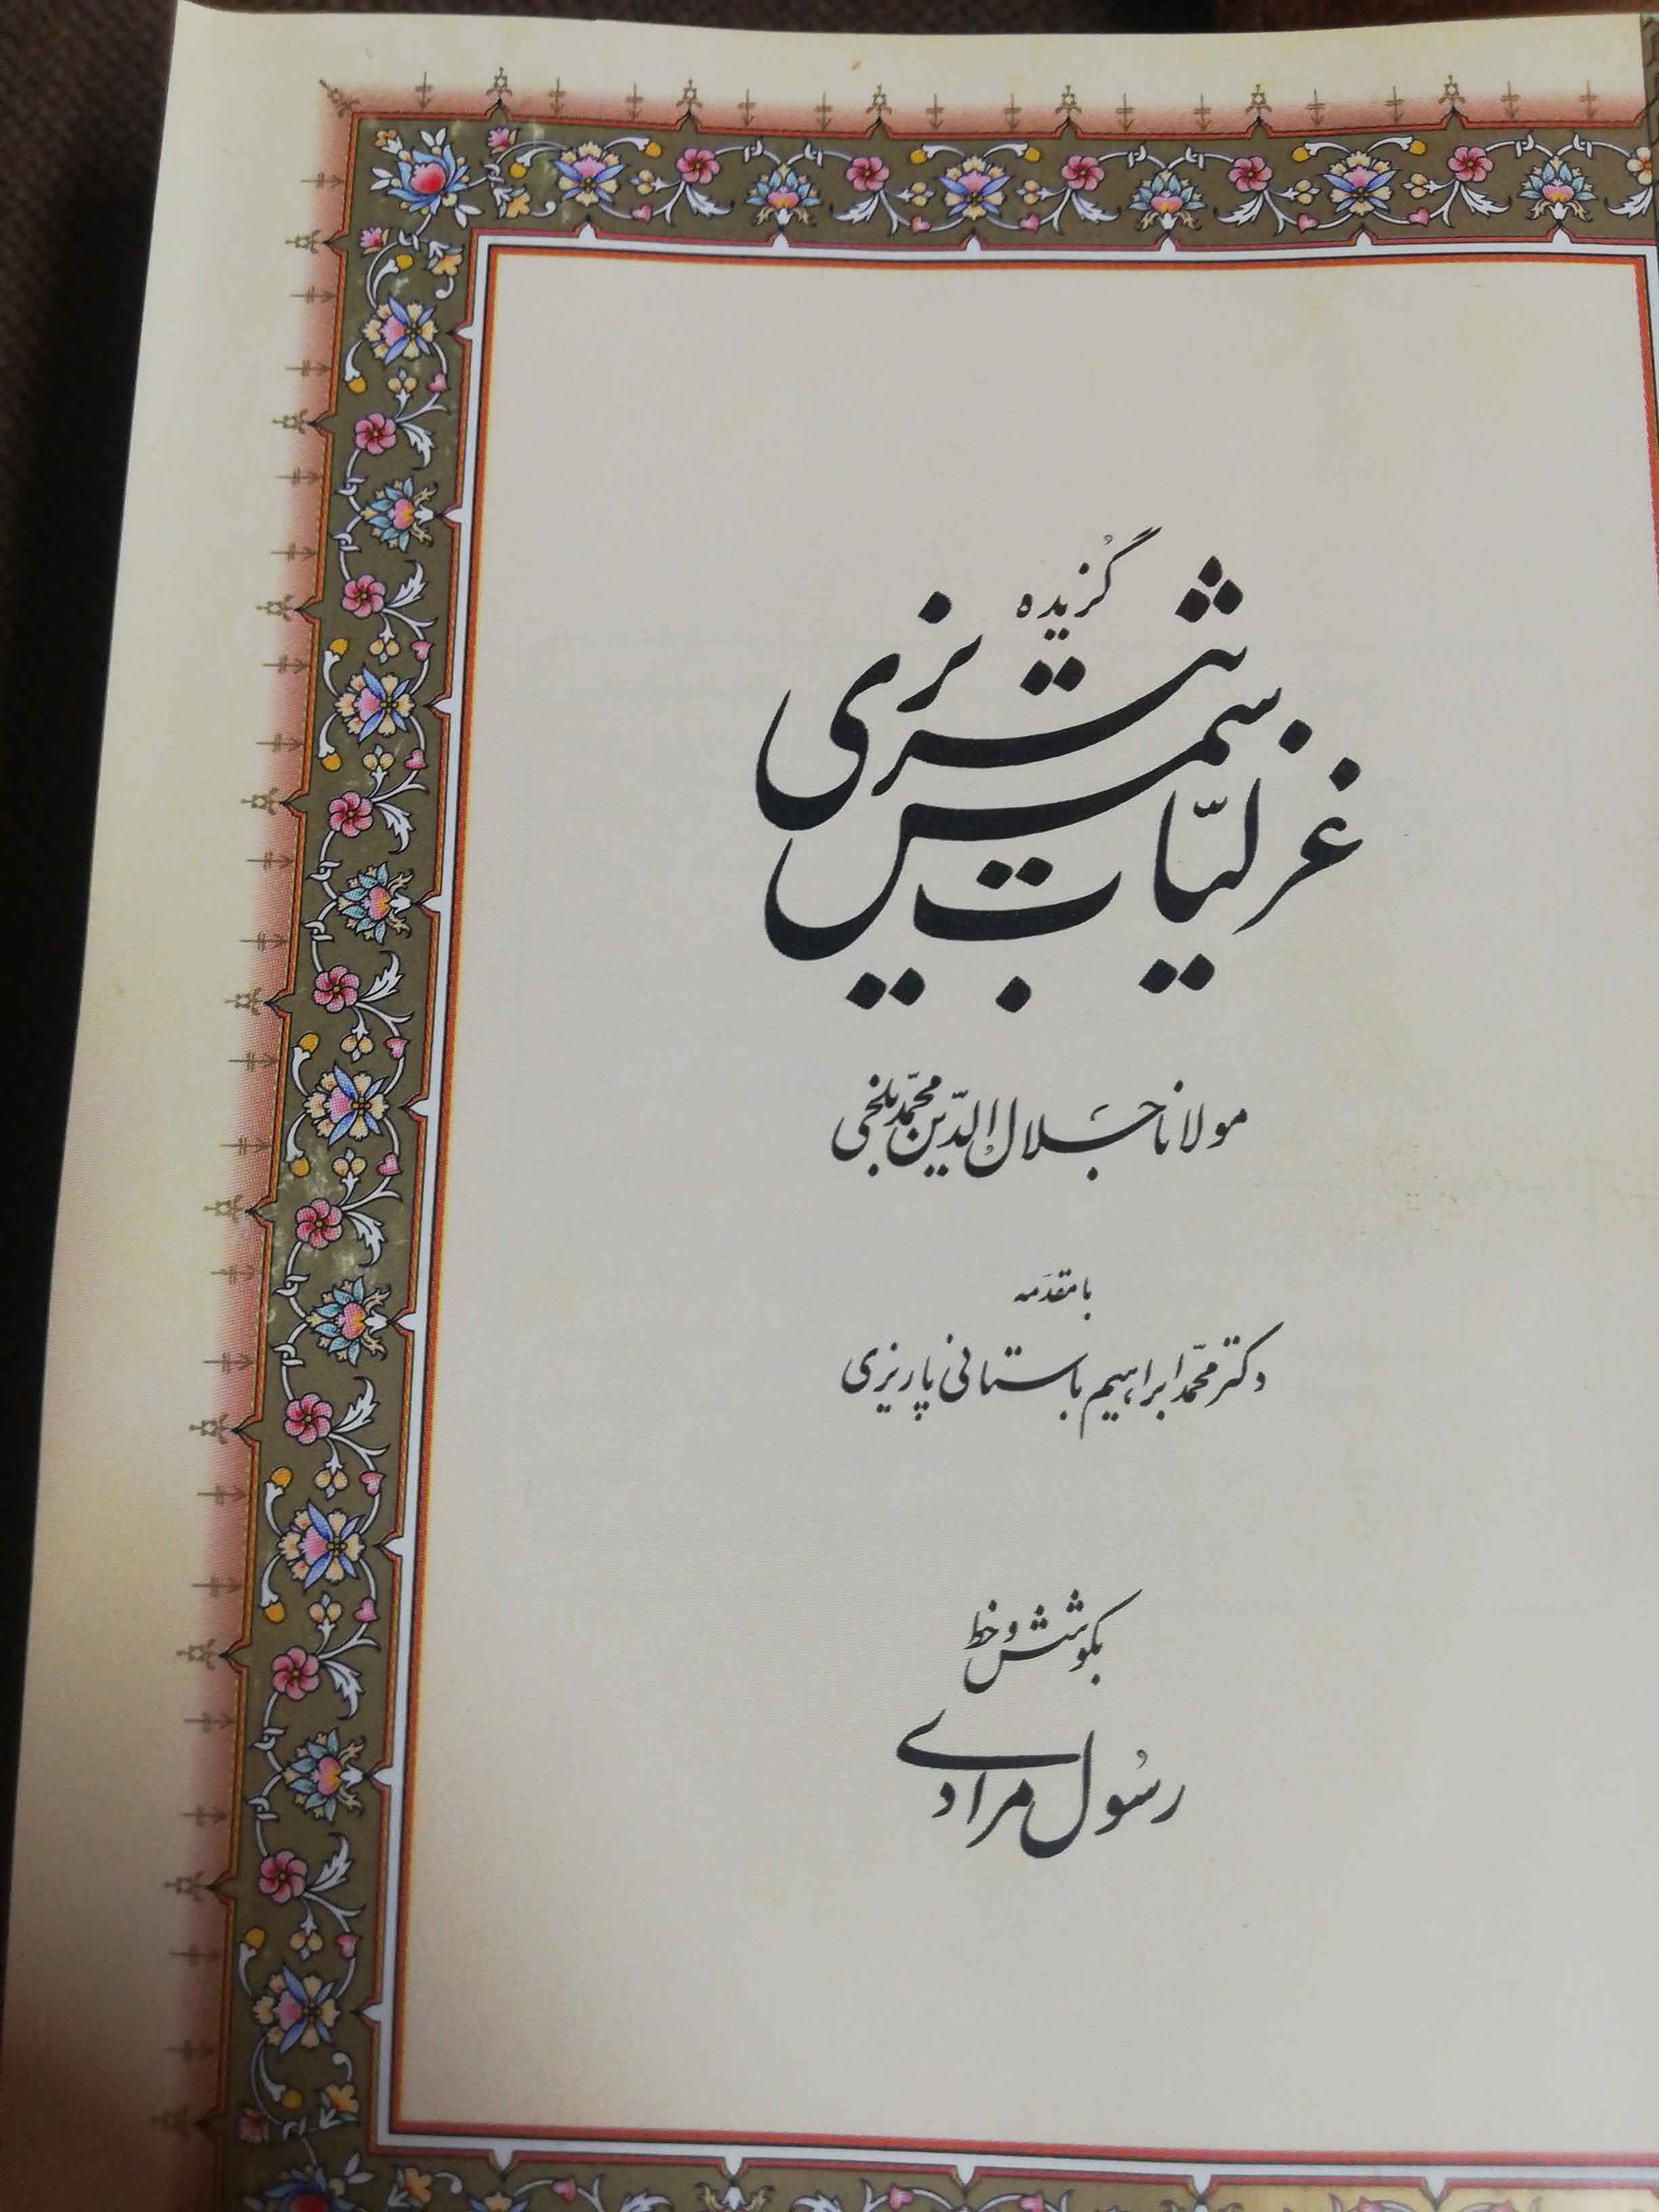 گزیده
غزلیّات شمس تبریزی
مولانا جلال الدّین محمّد بلخی
با مقدّمه
دکتر محمّد ابراهیم باستانی پاریزی
بکوشش و خط
رسُول مرادی